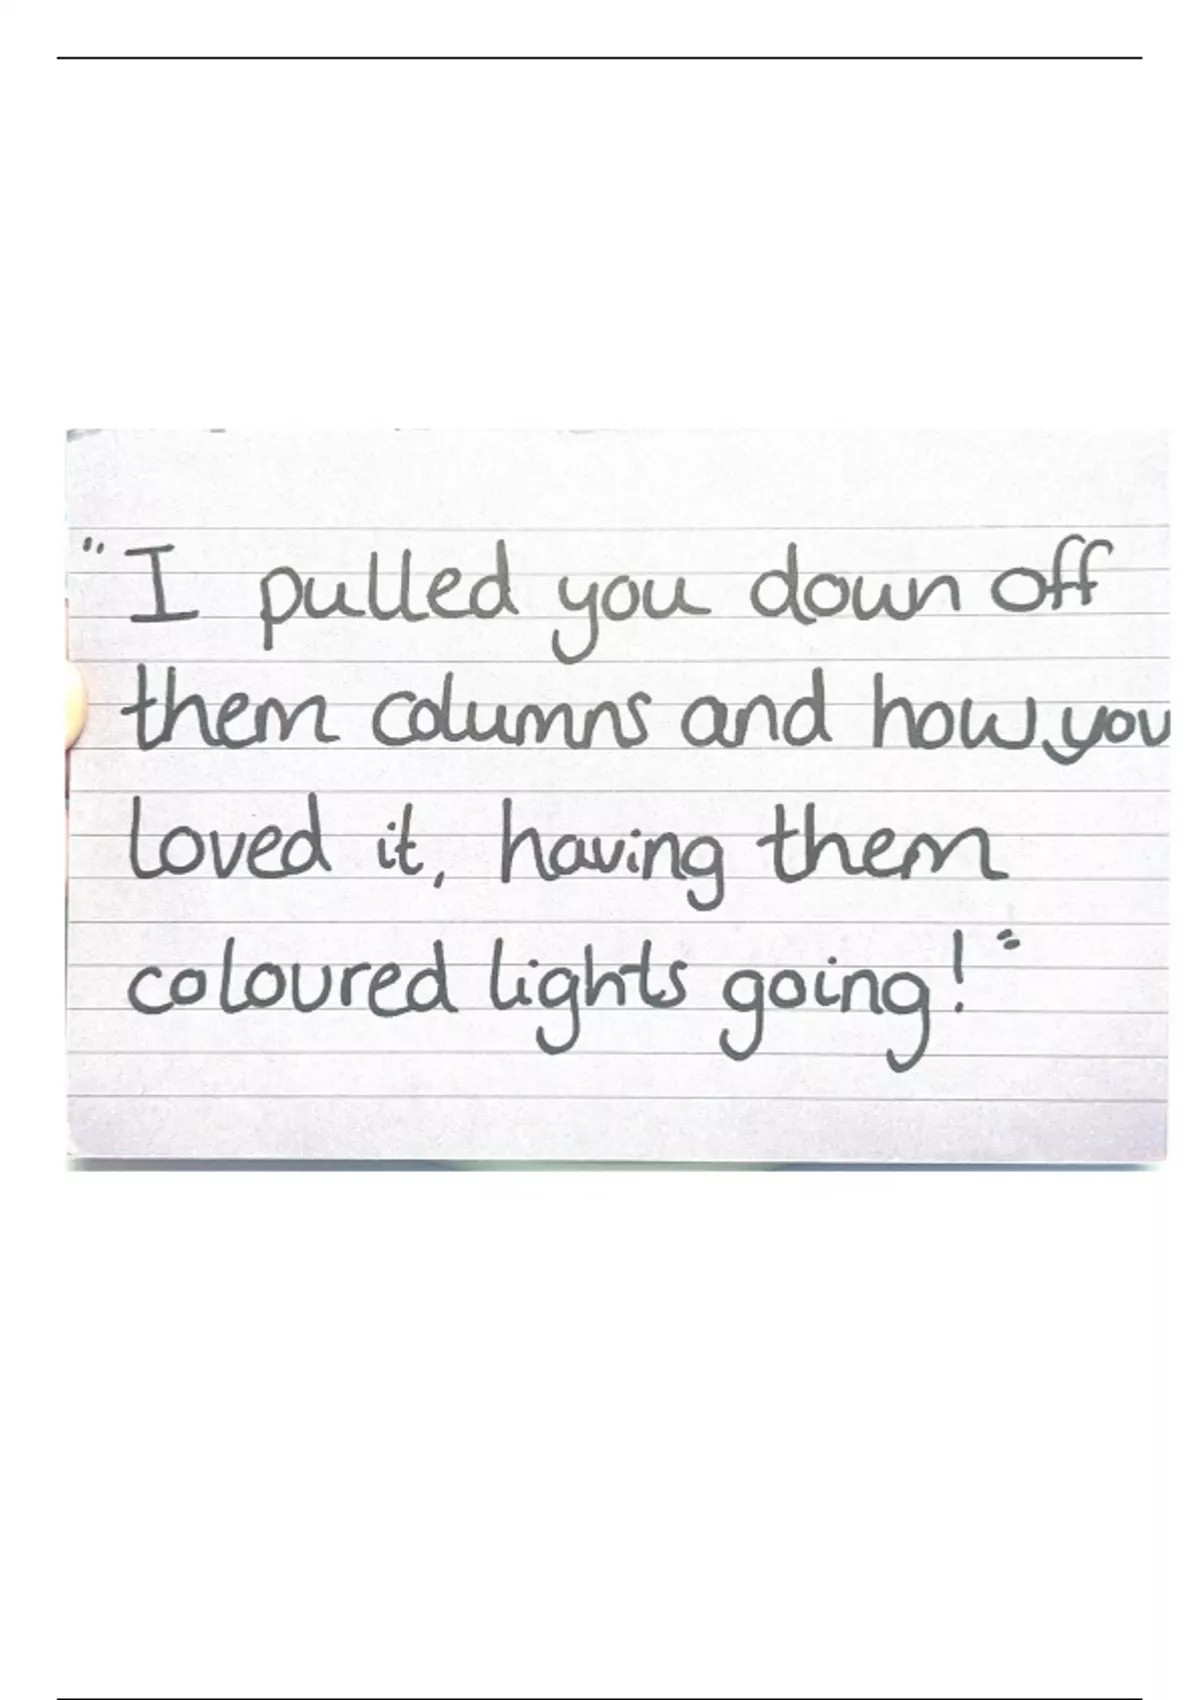 "I pulled you down off
them columns and how you
loved it, having them
coloured lights going!"